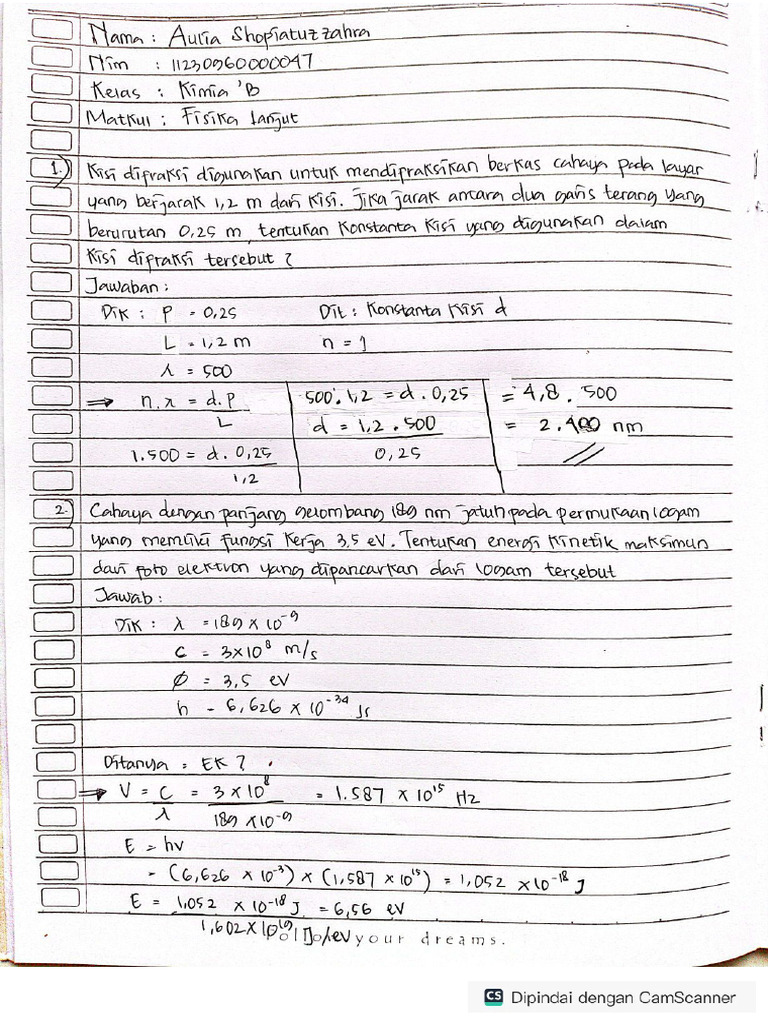 Nama : Aulia Shopiatuzzahra
Nim : 11230960000047
Kelas : Kimia 'B
Matkul : Fisika lanjut
1.) Kisi difraksi digunakan untuk mendifraksikan berkas cahaya pada layar
yang berjarak 1,2 m dari kisi. Jika jarak antara dua garis terang yang
berurutan 0,25 m, tentukan Konstanta Kisi yang digunakan dalam
Kisi difraksi tersebut ?
Jawaban :
Dik : P = 0,25 Dit : Konstanta Kisi d
L = 1,2 m n = 1
λ = 500
⇒ n.λ = d.P/L 500.1,2 = d.0,25 = 4,8.500
d = 1,2.500/0,25 = 2.400 nm
1.500 = d.0,25/1,2
2.) Cahaya dengan panjang gelombang 189 nm jatuh pada permukaan logam
yang memiliki fungsi Kerja 3,5 eV. Tentukan energi Kinetik maksimun
dari foto elektron yang dipancarkan dari logam tersebut
Jawab :
Dik : λ = 189 x 10⁻⁹
C = 3x10⁸ m/s
Ø = 3,5 eV
h = 6,626 x 10⁻³⁴ Js
Ditanya : EK ?
⇒ V = C/λ = 3 x 10⁸/189 x 10⁻⁹ = 1.587 x 10¹⁵ Hz
E = hv
= (6,626 x 10⁻³) x (1,587 x 10¹⁵) = 1,052 x 10⁻¹⁸ J
E = 1,052 x 10⁻¹⁸ J/1,602 x 10¹⁹ J/eV = 6,56 eV
your dreams.
CS Dipindai dengan CamScanner